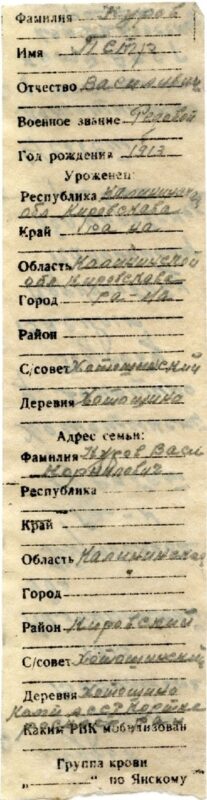 Фамилия Куров
Имя Петр
Отчество Василивич
Военное звание Редовой
Год рождения 1913
Уроженец:
Республика Калининск
обл Кировскаво
Край ра на
Область Калининской
обл Кировскаво
Город ра-на
Район
С/совет Хотошинский
Деревня Хотошино
Адрес семьи:
Фамилия Куров Васи
Корнилович
Республика
Край
Область Калининская
Город
Район Кировский
С/совет Хотошинский
Деревня Хотошино
Каким РВК мобилизован
Группа крови
"" по Янскому